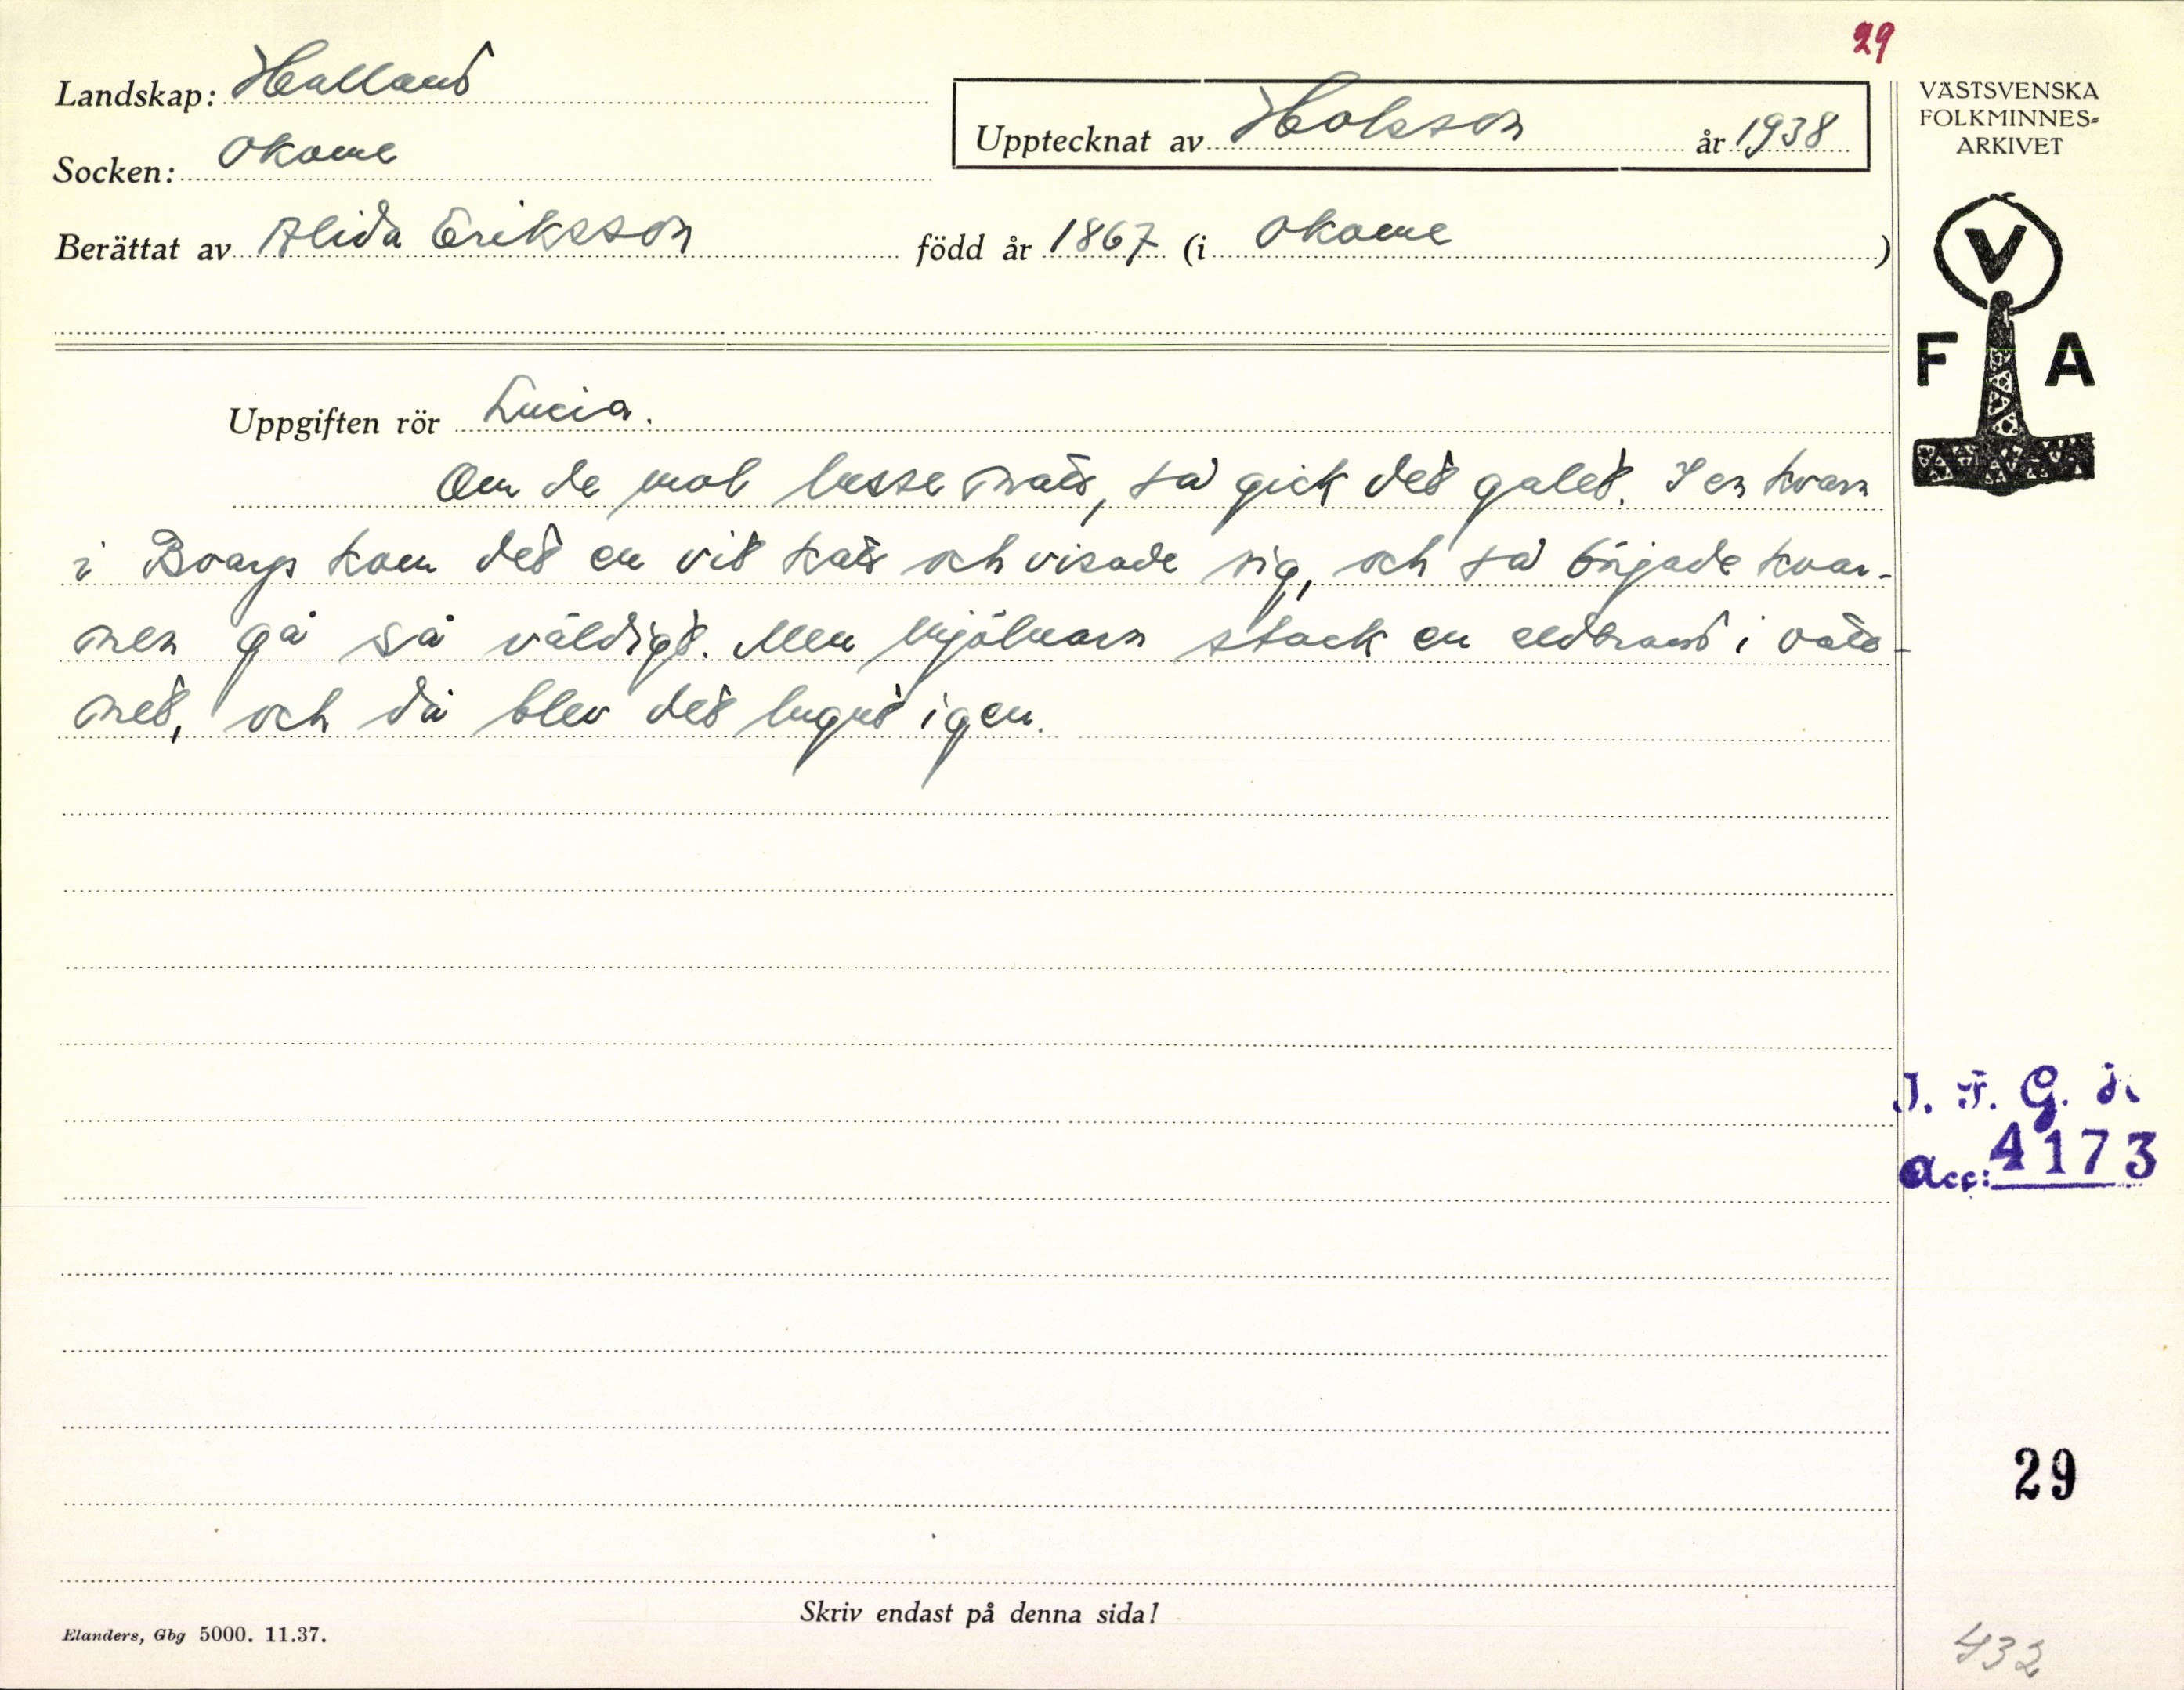 29
Landskap: Halland
Socken: Okome
Upptecknat av Holsson år 1938
Berättat av Alida Eriksson född år 1867 (i Okome)
VÄSTSVENSKA
FOLKMINNES-
ARKIVET
V
F A
Uppgiften rör Lucia.
Om de mol lussenatt, så gick det galet. I en kvarn
i kom det en vit katt och visade sig, och så började kvar-
nen gå så väldigt. Men mjölnarn stack en eldbrand i vatt-
net, och då blev det lugnt igen.
I. F. G. s
Acc: 4173
29
Skriv endast på denna sida!
Elanders, Gbg 5000. 11.37.
432